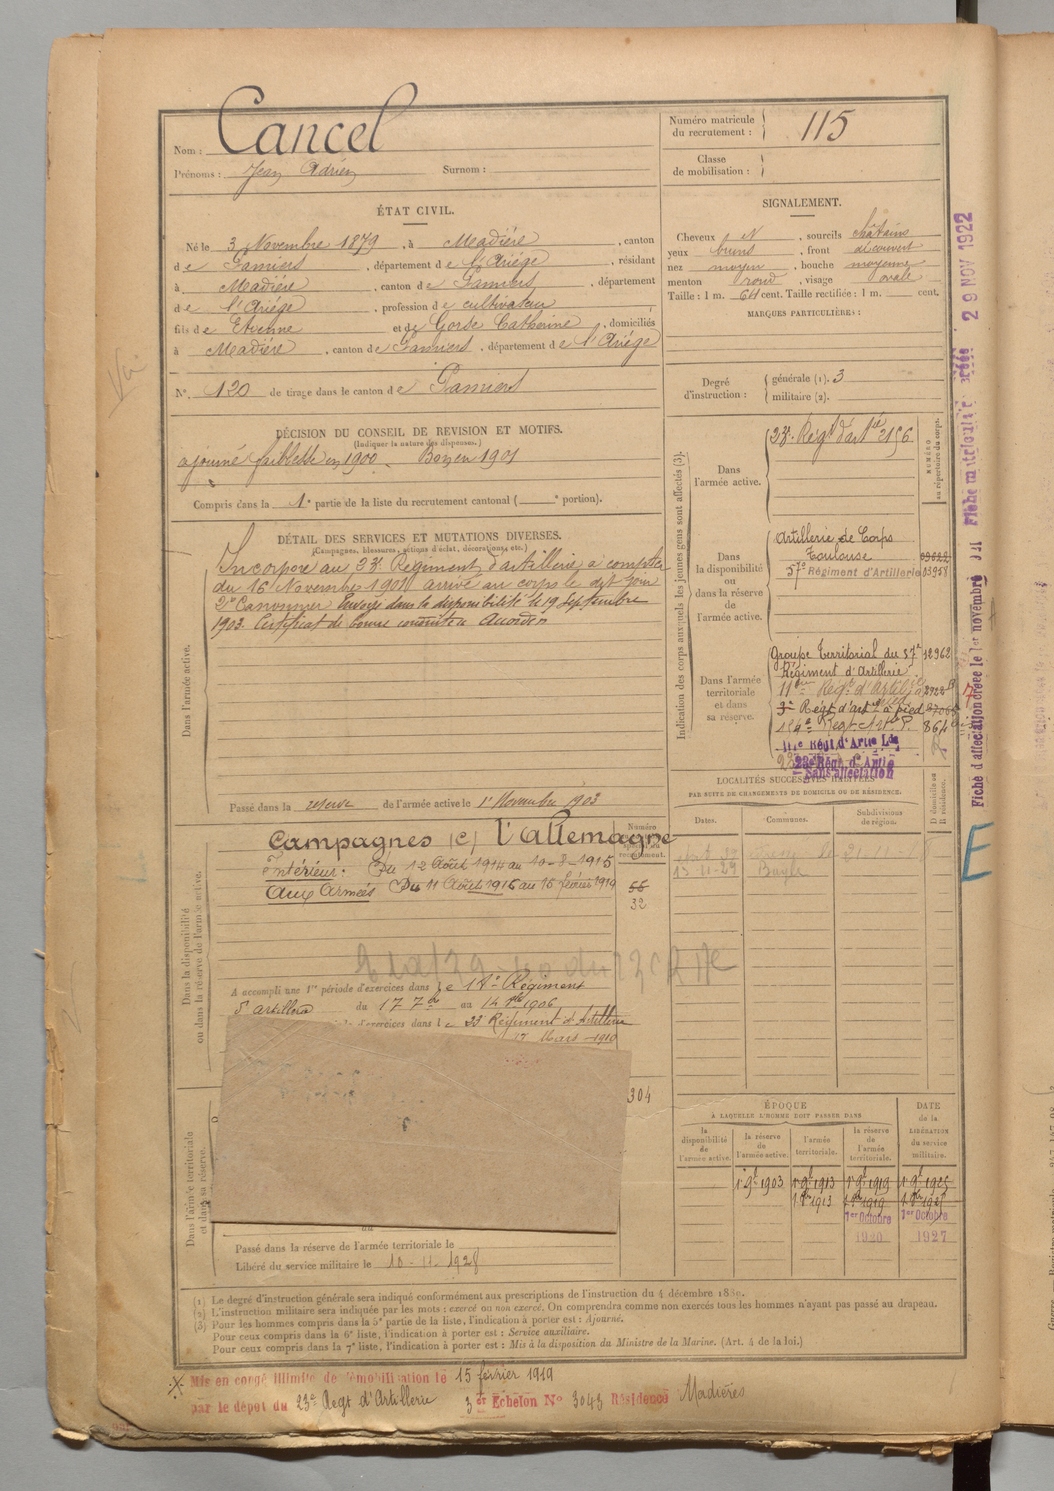 Nom : Cancel
Prénoms : Jean Adrien Surnom :
Numéro matricule du recrutement : 115
Classe de mobilisation :
ÉTAT CIVIL.
Né le 3 Novembre 1879, à Madière, canton
de Pamiers, département de l'Ariège, résidant
à Madière, canton de Pamiers, département
de l'Ariège, profession de cultivateur
fils de Etienne et de Gorse Catherine, domiciliés
à Madière, canton de Pamiers, département de l'Ariège
N° 120 de tirage dans le canton de Pamiers
SIGNALEMENT.
Cheveux N, sourcils châtains
yeux bruns, front découvert
nez moyen, bouche moyenne
menton rond, visage ovale
Taille : 1 m. 64 cent. Taille rectifiée : 1 m. cent.
MARQUES PARTICULIÈRES :
Degré d'instruction : générale (1). 3
militaire (2).
DÉCISION DU CONSEIL DE REVISION ET MOTIFS.
(Indiquer la nature des dispenses.)
ajourné faiblesse en 1900. Bon en 1901
Compris dans la 1e partie de la liste du recrutement cantonal ( e portion).
DÉTAIL DES SERVICES ET MUTATIONS DIVERSES.
(Campagnes, blessures, actions d'éclat, décorations, etc.)
Dans l'armée active.
Incorporé au 23e Régiment d'artillerie à compter
du 16 Novembre 1901 arrivé au corps le dit jour
2e Canonnier Envoyé dans la disponibilité le 19 Septembre
1903. Certificat de bonne conduite Accordé
Passé dans la réserve de l'armée active le 1er Novembre 1903
Indication des corps auxquels les jeunes gens sont affectés (3).
NUMÉRO au répertoire du corps.
Dans l'armée active.
23e Régt d'artie 2156
Dans la disponibilité ou dans la réserve de l'armée active.
Artillerie de Corps
Toulouse
57e Régiment d'Artillerie 03958
Dans l'armée territoriale et dans sa réserve.
Groupe Territorial du 57e 12962
Régiment d'Artillerie
3e Régt d'art à pied
Régt Art P.
111e Régt d'Artie Lde
23e Régt d'Artie
Sans affectation
Dans la disponibilité ou dans la réserve de l'armée active.
Campagnes (C) l'Allemagne
Intérieur. Du 12 Août 1914 au 10-8-1915
Aux Armées Du 11 Août 1916 au 15 février 1919
56
32
A accompli une 1re période d'exercices dans le 18e Régiment
d'artillerie du 17 7bre au 14 8bre 1906
d'exercices dans le 23e Régiment d'Artillerie
17 Mars 1910
304
LOCALITÉS SUCCESSIVES HABITÉES
PAR SUITE DE CHANGEMENTS DE DOMICILE OU DE RÉSIDENCE.
Dates. Communes. Subdivisions de région. D domicile ou R résidence.
Dans l'armée territoriale et dans sa réserve.
Passé dans la réserve de l'armée territoriale le
Libéré du service militaire le 10-11-1928
ÉPOQUE
À LAQUELLE L'HOMME DOIT PASSER DANS
DATE de la LIBÉRATION du service militaire.
la disponibilité de l'armée active. la réserve de l'armée active. l'armée territoriale. la réserve de l'armée territoriale.
1er 9bre 1903 1er 9bre 1913 1er 9bre 1919 1er 9bre 1925
1er Octobre 1er Octobre
1920 1927
(1) Le degré d'instruction générale sera indiqué conformément aux prescriptions de l'instruction du 4 décembre 1889.
(2) L'instruction militaire sera indiquée par les mots : exercé ou non exercé. On comprendra comme non exercés tous les hommes n'ayant pas passé au drapeau.
(3) Pour les hommes compris dans la 5e partie de la liste, l'indication à porter est : Ajourné.
Pour ceux compris dans la 6e liste, l'indication à porter est : Service auxiliaire.
Pour ceux compris dans la 7e liste, l'indication à porter est : Mis à la disposition du Ministre de la Marine. (Art. 4 de la loi.)
Mis en congé illimité de démobilisation le 15 février 1919
par le dépôt du 23e Regt d'Artillerie 3e Echelon N° 3043 Résidence Madières
29 NOV 1922
E